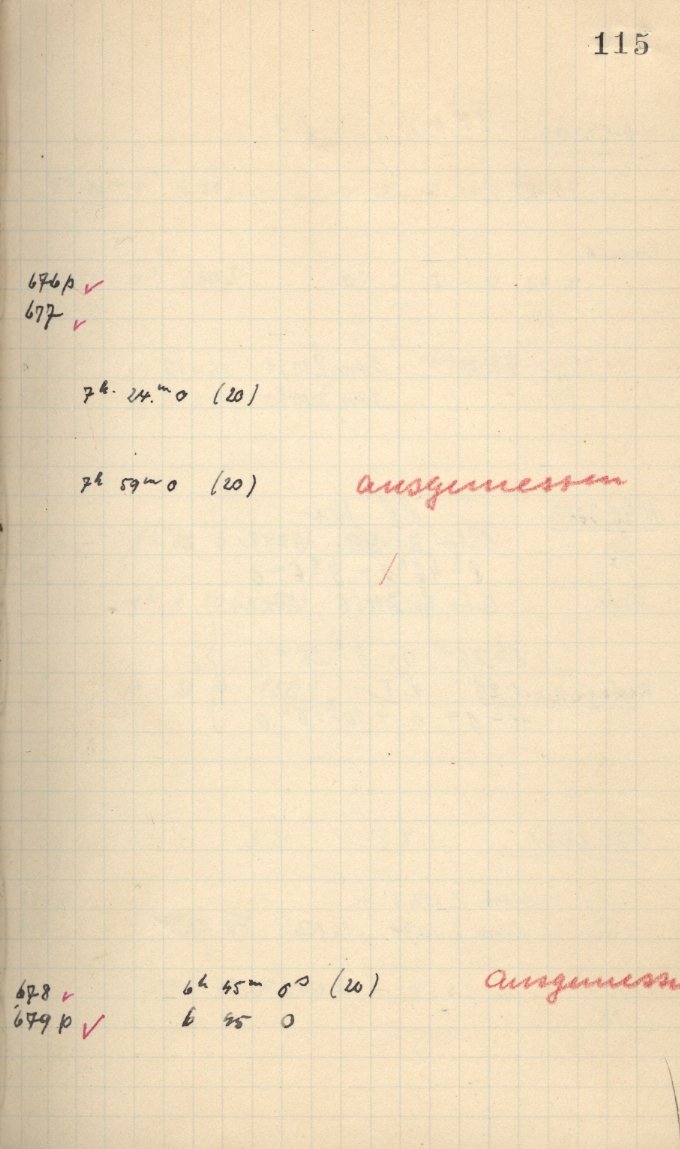 115
676p ✓
677 ✓
7h. 24.m 0 (20)
7h 59m 0 (20) ausgemessen
/
678 ✓ 6h 45m 0s (20) ausgemesse
679p ✓ 6 45 0